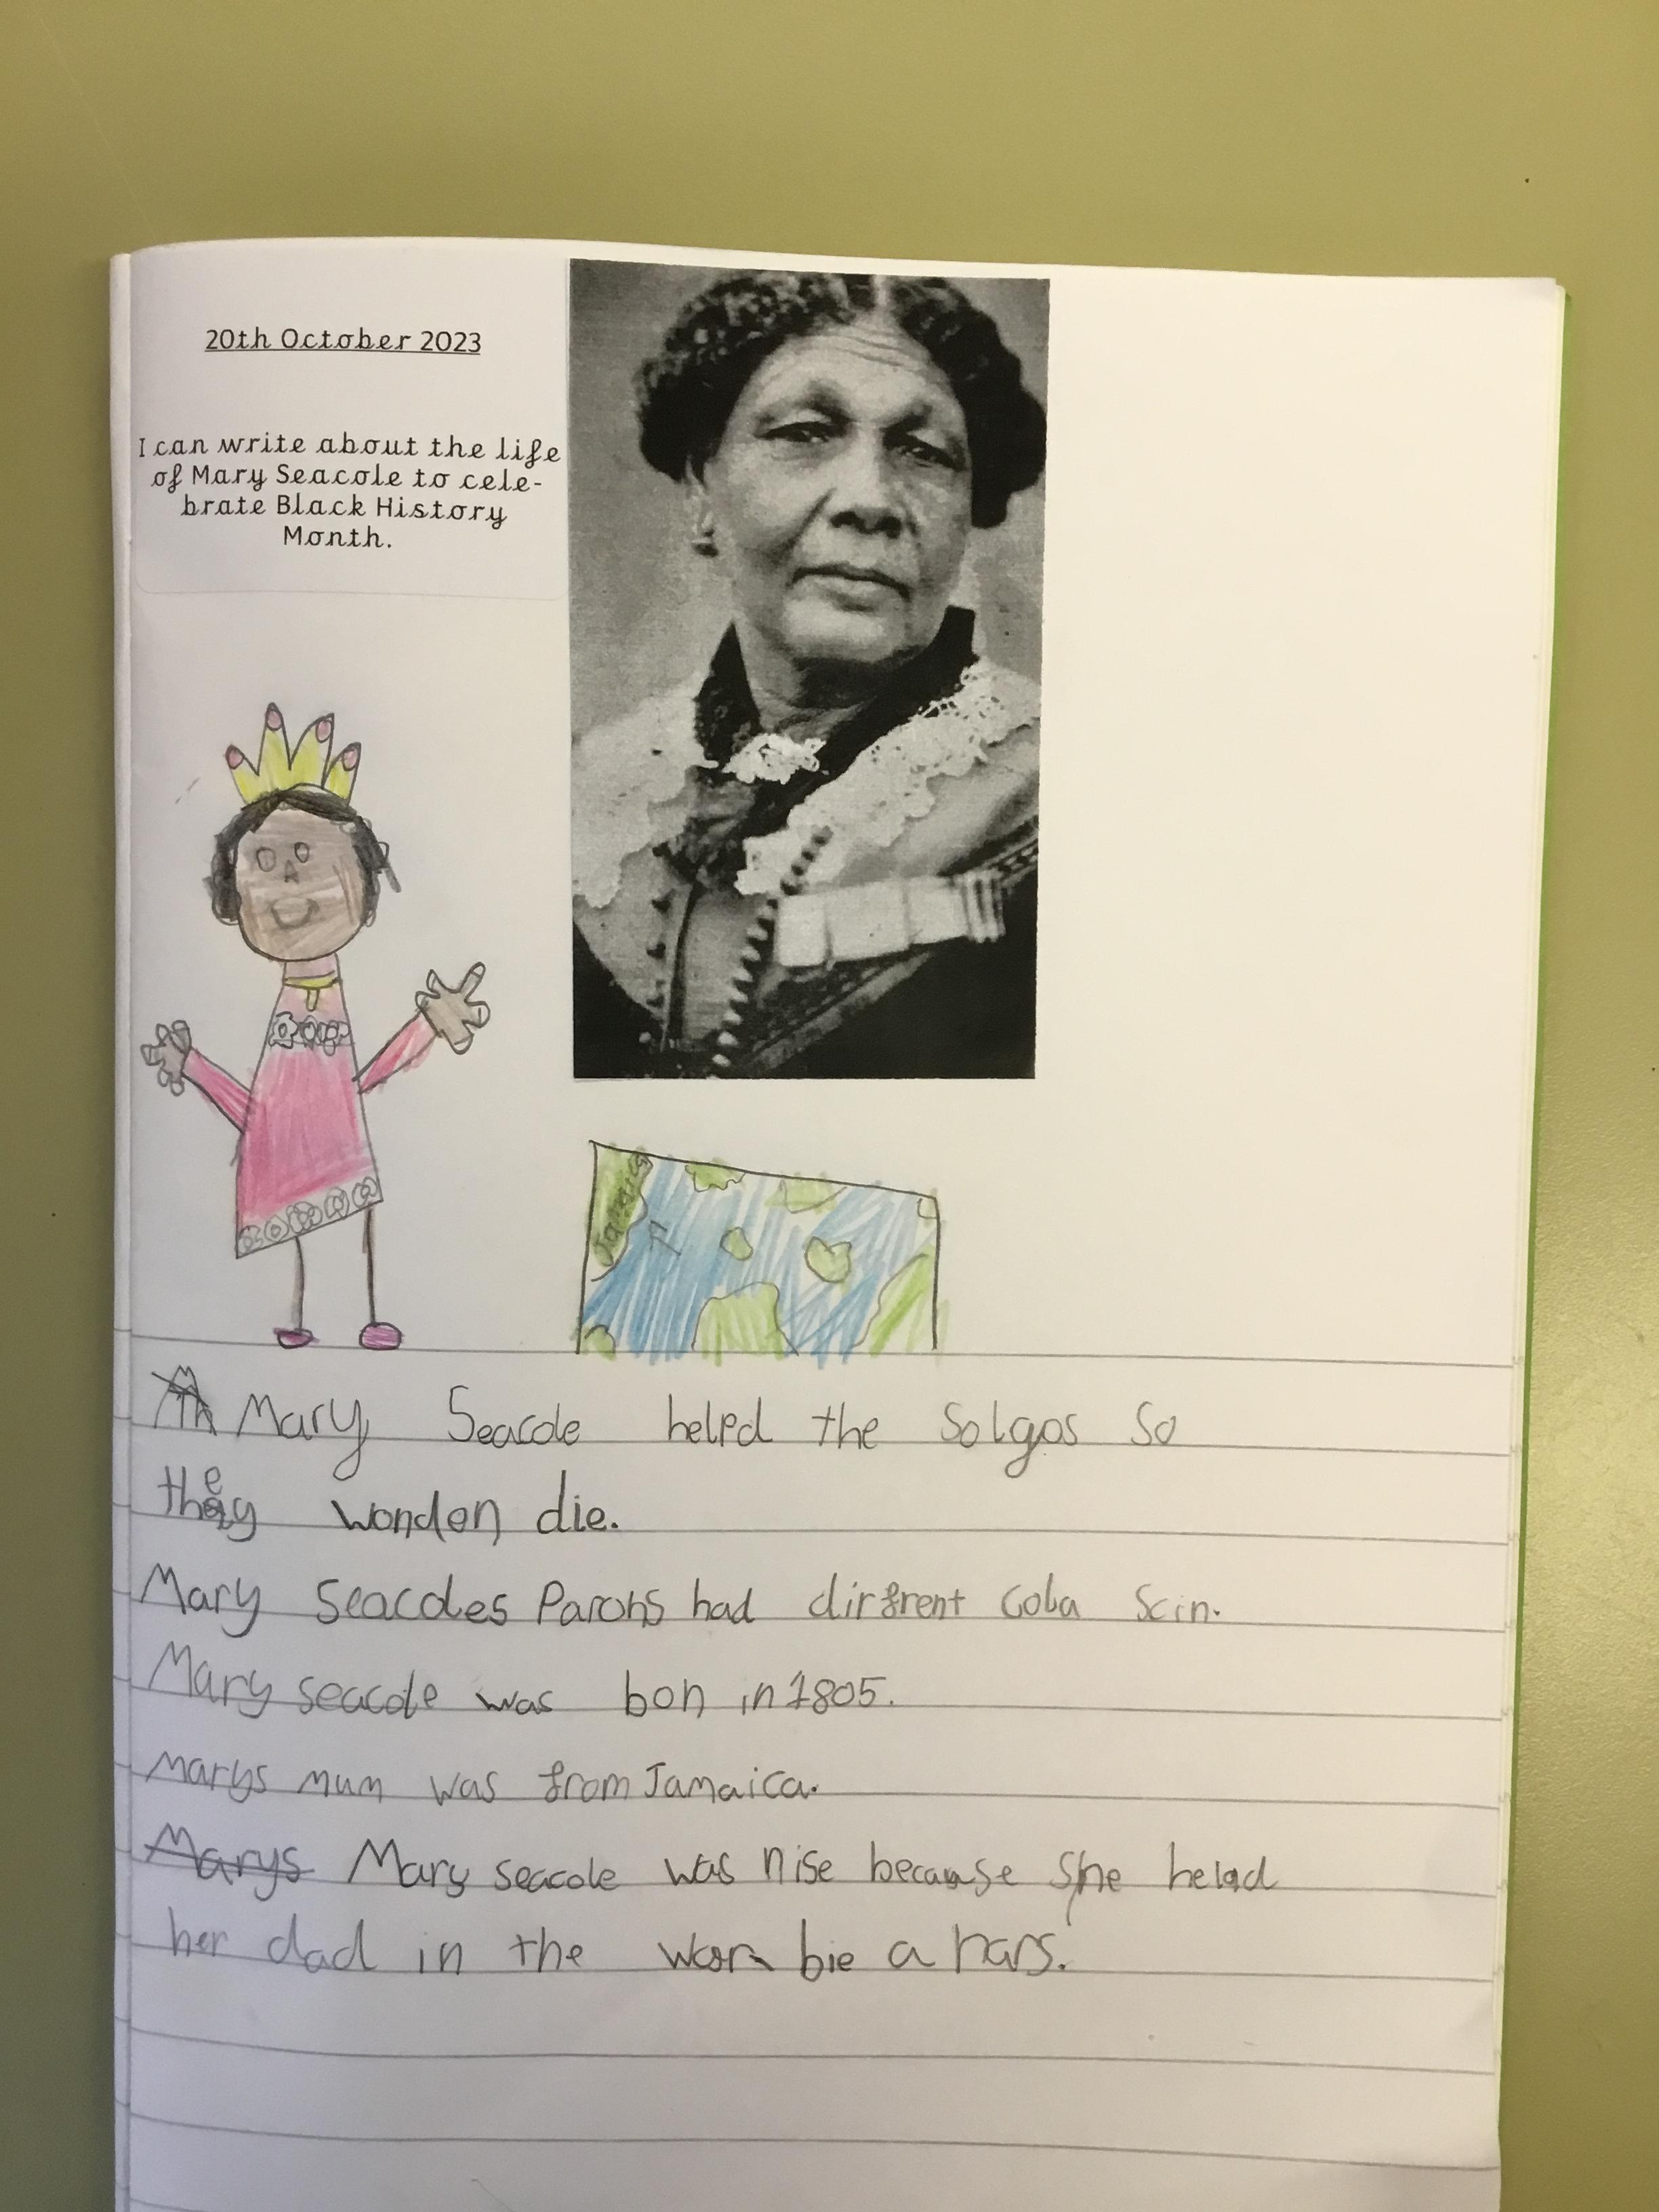 20th October 2023
I can write about the life
of Mary Seacole to cele-
brate Black History
Month.
Jamaica
Mary Seacole helpd the Solgos So
they wonden die.
Mary Seacoles Parons had dirfrent Cola Scin.
Mary seacole was bon in 1805.
Marys mum was from Jamaica.
Marys Mary seacole was nise because She helad
her dad in the worn bie a nars.